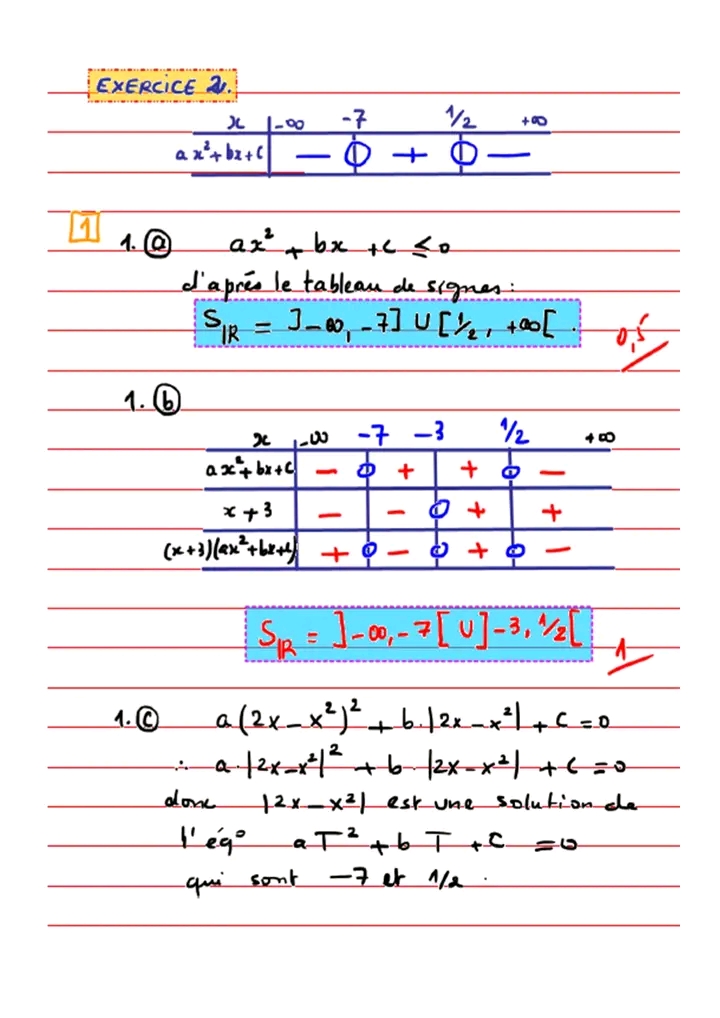 EXERCICE 2.
x -∞ -7 1/2 +∞
ax²+bx+c - 0 + 0 -
1
1. a ax² + bx + c ≤ 0
d'aprés le tableau de signes:
S_IR = ]-∞, -7] U [1/2, +∞[ .
0,5
1. b
x -∞ -7 -3 1/2 +∞
ax²+bx+c - 0 + + 0 -
x + 3 - - 0 + +
(x+3)(ax²+bx+c) + 0 - 0 + 0 -
S_IR = ]-∞, -7[ U ]-3, 1/2[
1
1. c a(2x-x²)² + b.|2x-x²| + C = 0
∴ a.|2x-x²|² + b.|2x-x²| + C = 0
donc |2x-x²| est une solution de
l'éq° aT² + bT + C = 0
qui sont -7 et 1/2 .